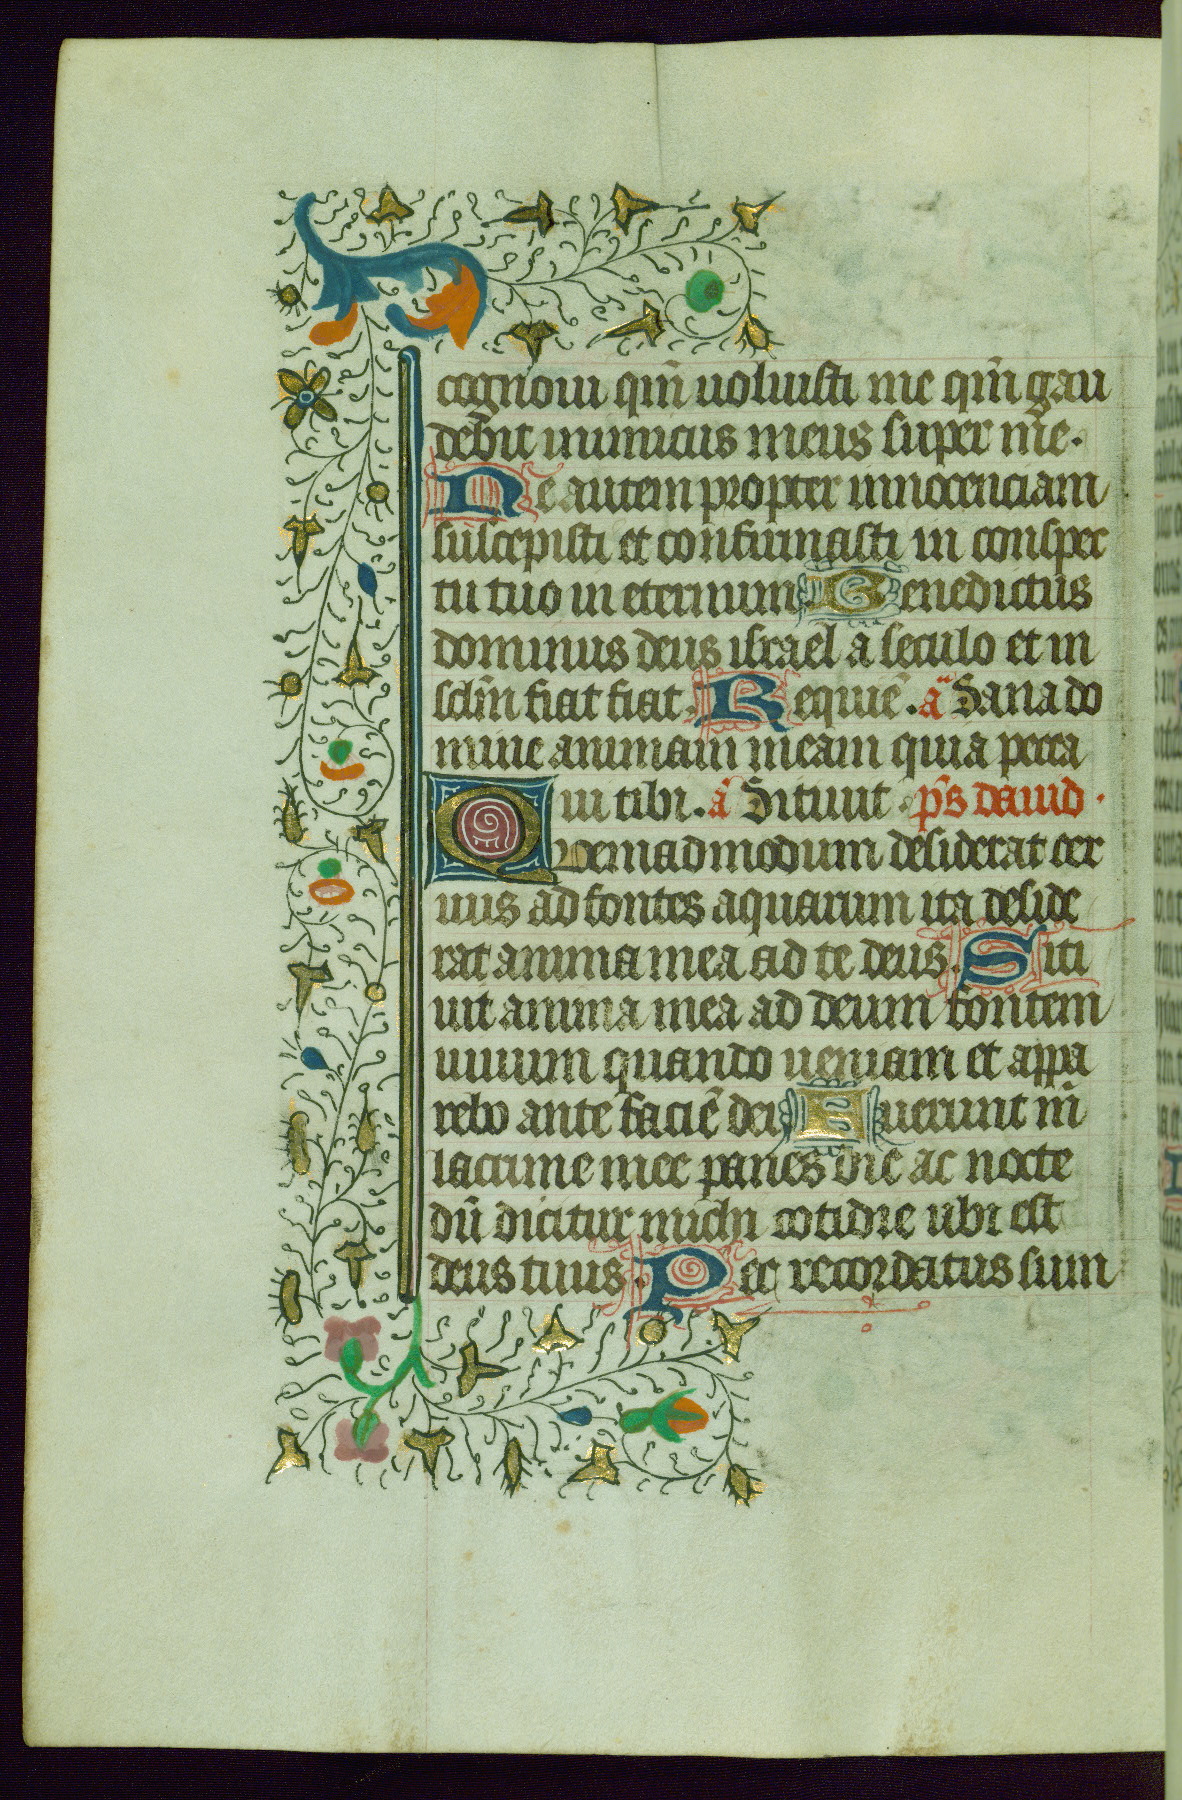 cognoui qm̄ uoluisti me qm̄ gau
debit inimicus meus super me.
Me autem propter innocenciam
suscepisti et confirmasti in conspec
tu tuo in eternum Benedictus
dominus deus israel a seculo et in
sclm̄ fiat fiat. Requiē. an̄ Sana do
mine animam meam quia pecca
ui tibi. an̄ Sitiuit. p̄s dauid.
Quemadmodum desiderat cer
uus ad fontes aquarum ita deside
rat anima mea ad te deus. Siti
uit anima mea ad deum fontem
uiuum quando ueniam et appa
rebo ante faciē dei Fuerunt m̄
lacrime mee panes die ac nocte
dū dicitur michi cotidie ubi est
deus tuus. Hec recordatus sum